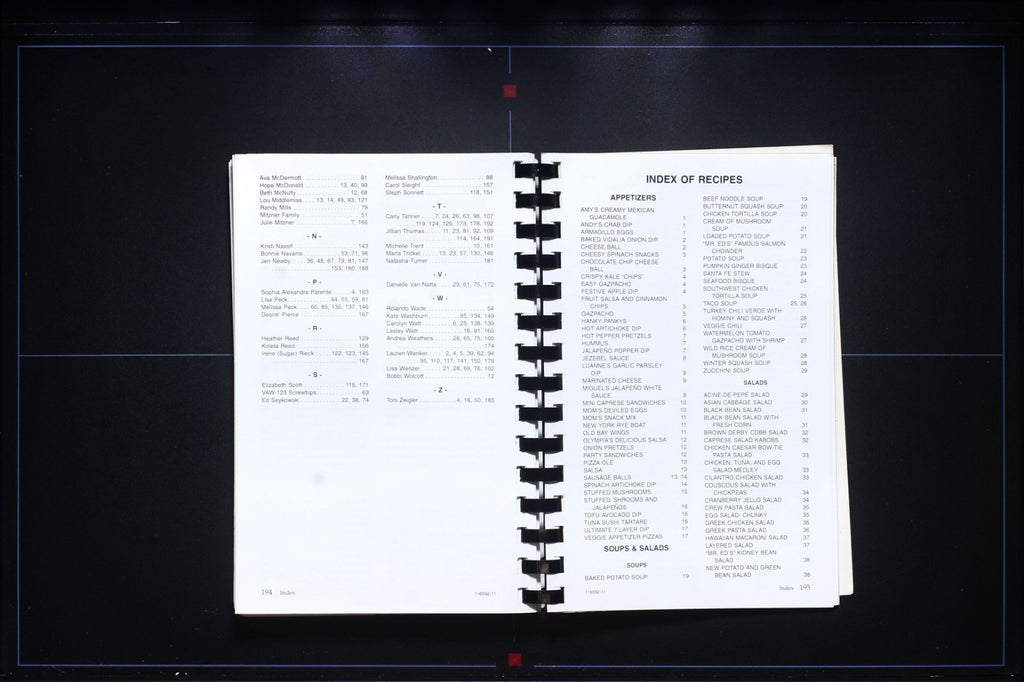 Ava McDermott . . . . . . . . . . . . . . . . . 91
Hope McDonald . . . . . . . . . . 13, 40, 99
Beth McNulty. . . . . . . . . . . . . . . . 12, 68
Lou Middlemiss. . . . 13, 14, 49, 93, 121
Randy Mills . . . . . . . . . . . . . . . . . . . . 79
Mitzner Family . . . . . . . . . . . . . . . . . . 51
Julie Mitzner . . . . . . . . . . . . . . . . . 7, 166
- N -
Kristi Nassif . . . . . . . . . . . . . . . . . . . 143
Bonnie Navarre. . . . . . . . . . . 53, 71, 96
Jen Newby. . . . . 36, 48, 67, 79, 81, 147
153, 160, 188
- P -
Sophia Alexandra Parente . . . . 4, 183
Lisa Peck. . . . . . . . . . . . . 44, 55, 59, 81
Melissa Peck . . . . 60, 85, 130, 137, 146
Desire' Pierce . . . . . . . . . . . . . . . . . 167
- R -
Heather Reed . . . . . . . . . . . . . . . . . 129
Koleta Reed . . . . . . . . . . . . . . . . . . 156
Irene (Sugar) Rieck . . . . . 122, 123, 145
167
- S -
Elizabeth Scott . . . . . . . . . . . . 115, 171
VAW-123 Screwtops. . . . . . . . . . . . . 63
Ed Seykowski . . . . . . . . . . . . 22, 38, 74
Melissa Shallington. . . . . . . . . . . . . . 88
Carol Sleight . . . . . . . . . . . . . . . . . . 157
Steph Sonnett . . . . . . . . . . . . . 118, 151
- T -
Carly Tanner . . . . 7, 24, 26, 63, 98, 107
. . . . . . . 119, 124, 126, 173, 178, 192
Jillian Thomas . . . . . 11, 23, 81, 92, 109
114, 164, 191
Michelle Trent . . . . . . . . . . . . . . 10, 161
Marla Tricker . . . . . 13, 23, 57, 130, 146
Natasha Turner . . . . . . . . . . . . . . . . 181
- V -
Danielle Van Natta . . . . . 29, 61, 75, 172
- W -
Rolando Wade . . . . . . . . . . . . . . . . . 54
Kate Washburn. . . . . . . . . . 95, 134, 149
Carolyn Watt . . . . . . . . . 6, 25, 138, 139
Lesley Watt . . . . . . . . . . . . . 16, 91, 160
Andrea Weathers . . . . . . 28, 65, 75, 100
174
Lauren Wenker . . . . . 2, 4, 5, 39, 62, 94
. . . . . . . 95, 110, 117, 141, 150, 179
Lisa Wenzel . . . . . . . . 21, 28, 69, 76, 102
Bobbi Wolcott . . . . . . . . . . . . . . . . . . 12
- Z -
Toni Zeigler . . . . . . . . . . . 4, 16, 50, 185
194 Index
116592-11
INDEX OF RECIPES
APPETIZERS
AMY'S CREAMY MEXICAN
GUACAMOLE 1
ANDY'S CRAB DIP 1
ARMADILLO EGGS 1
BAKED VIDALIA ONION DIP 2
CHEESE BALL 2
CHEESY SPINACH SNACKS 3
CHOCOLATE CHIP CHEESE
BALL 3
CRISPY KALE "CHIPS" 4
EASY GAZPACHO 4
FESTIVE APPLE DIP 4
FRUIT SALSA AND CINNAMON
CHIPS 5
GAZPACHO 5
HANKY PANKYS 6
HOT ARTICHOKE DIP 6
HOT PEPPER PRETZELS 7
HUMMUS 7
JALAPEÑO POPPER DIP 7
JEZEBEL SAUCE 8
LUANNE'S GARLIC PARSLEY
DIP 8
MARINATED CHEESE 9
MIGUEL'S JALAPEÑO WHITE
SAUCE 9
MINI CAPRESE SANDWICHES 10
MOM'S DEVILED EGGS 10
MOM'S SNACK MIX 11
NEW YORK RYE BOAT 11
OLD BAY WINGS 11
OLYMPIA'S DELICIOUS SALSA 12
ONION PRETZELS 12
PARTY SANDWICHES 12
PIZZA OLE' 13
SALSA 13
SAUSAGE BALLS 13, 14
SPINACH ARTICHOKE DIP 14
STUFFED MUSHROOMS 15
STUFFED 'SHROOMS AND
JALAPEÑOS 16
TOFU AVOCADO DIP 16
TUNA SUSHI TARTARE 16
ULTIMATE 7 LAYER DIP 17
VEGGIE APPETIZER PIZZAS 17
SOUPS & SALADS
SOUPS
BAKED POTATO SOUP 19
BEEF NOODLE SOUP 19
BUTTERNUT SQUASH SOUP 20
CHICKEN TORTILLA SOUP 20
CREAM OF MUSHROOM
SOUP 21
LOADED POTATO SOUP 21
"MR. ED'S" FAMOUS SALMON
CHOWDER 22
POTATO SOUP 23
PUMPKIN GINGER BISQUE 23
SANTA FE STEW 24
SEAFOOD BISQUE 24
SOUTHWEST CHICKEN
TORTILLA SOUP 25
TACO SOUP 25, 26
TURKEY CHILI VERDE WITH
HOMINY AND SQUASH 26
VEGGIE CHILI 27
WATERMELON TOMATO
GAZPACHO WITH SHRIMP 27
WILD RICE CREAM OF
MUSHROOM SOUP 28
WINTER SQUASH SOUP 28
ZUCCHINI SOUP 29
SALADS
ACINE-DE-PEPE SALAD 29
ASIAN CABBAGE SALAD 30
BLACK BEAN SALAD 31
BLACK BEAN SALAD WITH
FRESH CORN 31
BROWN DERBY COBB SALAD 32
CAPRESE SALAD KABOBS 32
CHICKEN CAESAR BOW-TIE
PASTA SALAD 33
CHICKEN, TUNA, AND EGG
SALAD MEDLEY 33
CILANTRO CHICKEN SALAD 33
COUSCOUS SALAD WITH
CHICKPEAS 34
CRANBERRY JELLO SALAD 34
CREW PASTA SALAD 35
EGG SALAD- CHUNKY 35
GREEK CHICKEN SALAD 36
GREEK PASTA SALAD 36
HAWAIIAN MACARONI SALAD 37
LAYERED SALAD 37
"MR. ED'S" KIDNEY BEAN
SALAD 38
NEW POTATO AND GREEN
BEAN SALAD 38
116592-11
Index 195